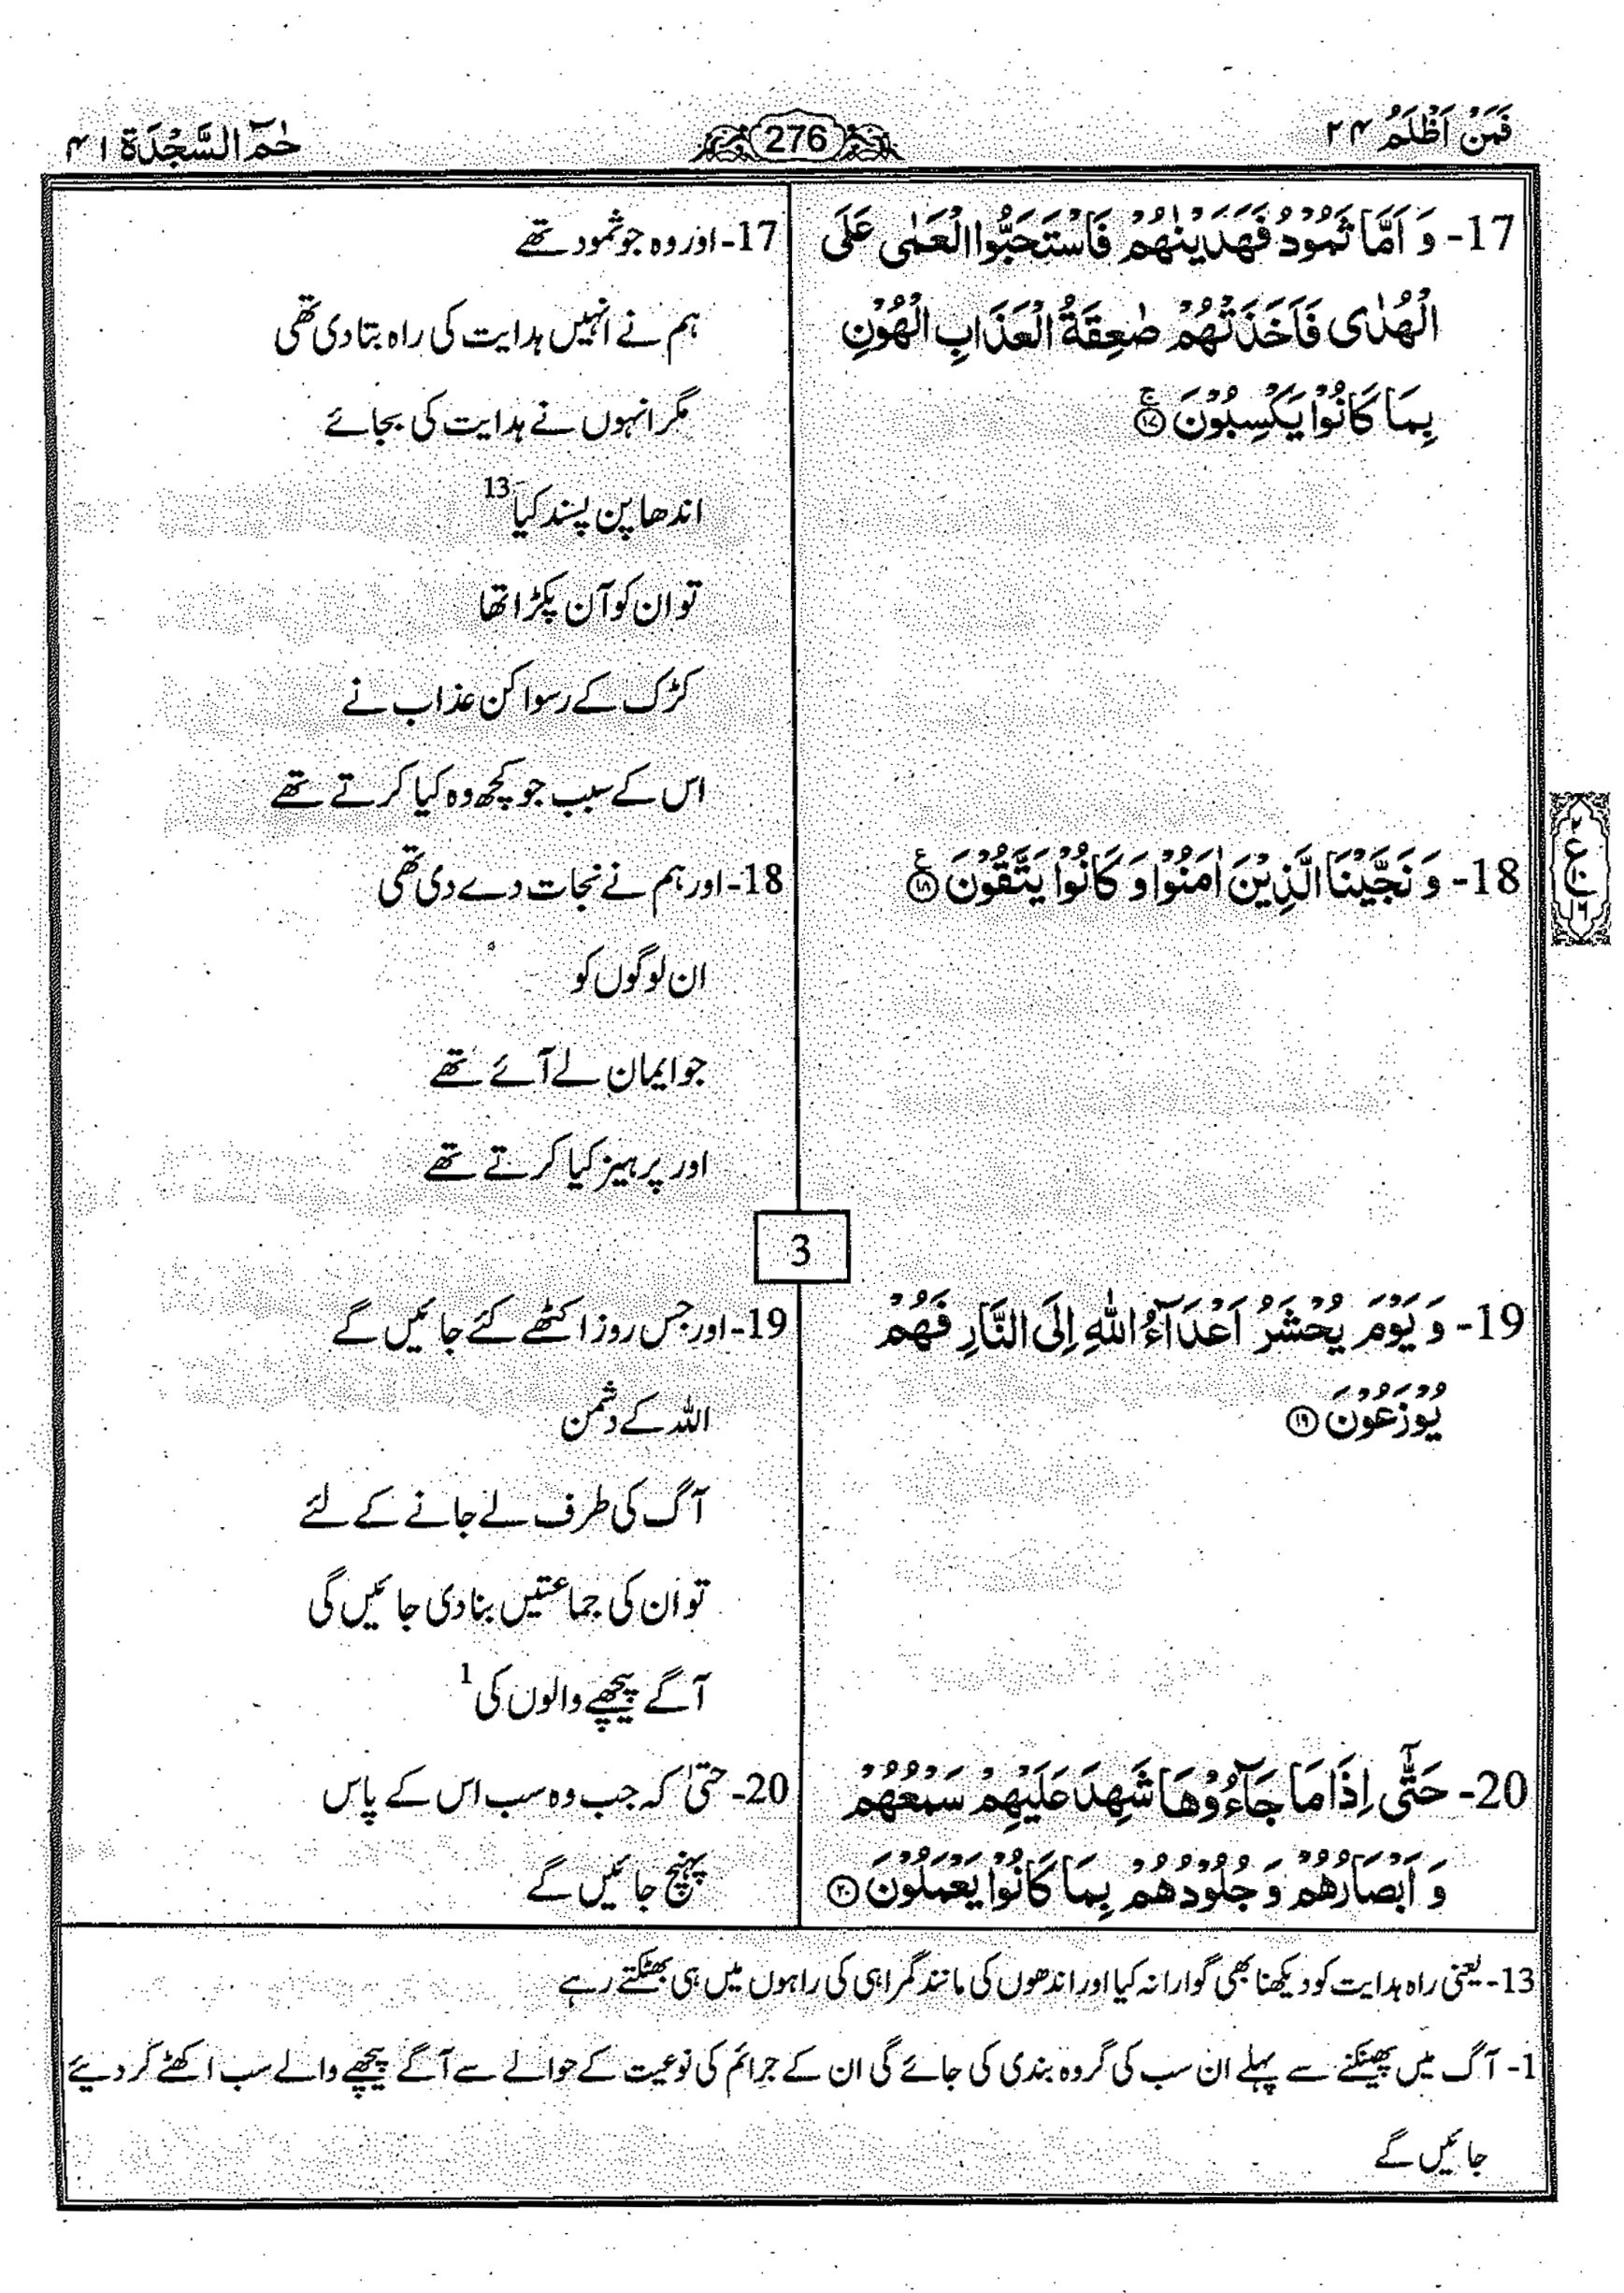 فَمَنْ اَظْلَمُ ۲۴
276
حٰمٓ السَّجْدَة ۴۱
17- وَ اَمَّا ثَمُوْدُ فَهَدَيْنٰهُمْ فَاسْتَحَبُّوا الْعَمٰى عَلَى
الْهُدٰى فَاَخَذَتْهُمْ صٰعِقَةُ الْعَذَابِ الْهُوْنِ
بِمَا كَانُوْا يَكْسِبُوْنَ ۚ ۝۱۷
17- اور وہ جو ثمود تھے
ہم نے انہیں ہدایت کی راہ بتا دی تھی
مگر انہوں نے ہدایت کی بجائے
اندھا پن پسند کیا 13
تو ان کو آن پکڑا تھا
کڑک کے رسوا کن عذاب نے
اس کے سبب جو کچھ وہ کیا کرتے تھے
18- وَ نَجَّيْنَا الَّذِيْنَ اٰمَنُوْا وَ كَانُوْا يَتَّقُوْنَ ۝۱۸ ع
۲
ع
۱۰
۱۶
18- اور ہم نے نجات دے دی تھی
ان لوگوں کو
جو ایمان لے آئے تھے
اور پرہیز کیا کرتے تھے
3
19- وَ يَوْمَ يُحْشَرُ اَعْدَآءُ اللّٰهِ اِلَى النَّارِ فَهُمْ
يُوْزَعُوْنَ ۝۱۹
19- اور جس روز اکٹھے کئے جائیں گے
اللہ کے دشمن
آگ کی طرف لے جانے کے لئے
تو ان کی جماعتیں بنا دی جائیں گی
آگے پیچھے والوں کی 1
20- حَتّٰٓى اِذَا مَا جَآءُوْهَا شَهِدَ عَلَيْهِمْ سَمْعُهُمْ
وَ اَبْصَارُهُمْ وَ جُلُوْدُهُمْ بِمَا كَانُوْا يَعْمَلُوْنَ ۝۲۰
20- حتیٰ کہ جب وہ سب اس کے پاس
پہنچ جائیں گے
13- یعنی راہ ہدایت کو دیکھنا بھی گوارا نہ کیا اور اندھوں کی مانند گمراہی کی راہوں میں ہی بھٹکتے رہے
1- آگ میں پھینکنے سے پہلے ان سب کی گروہ بندی کی جائے گی ان کے جرائم کی نوعیت کے حوالے سے آگے پیچھے والے سب اکھٹے کر دیئے
جائیں گے